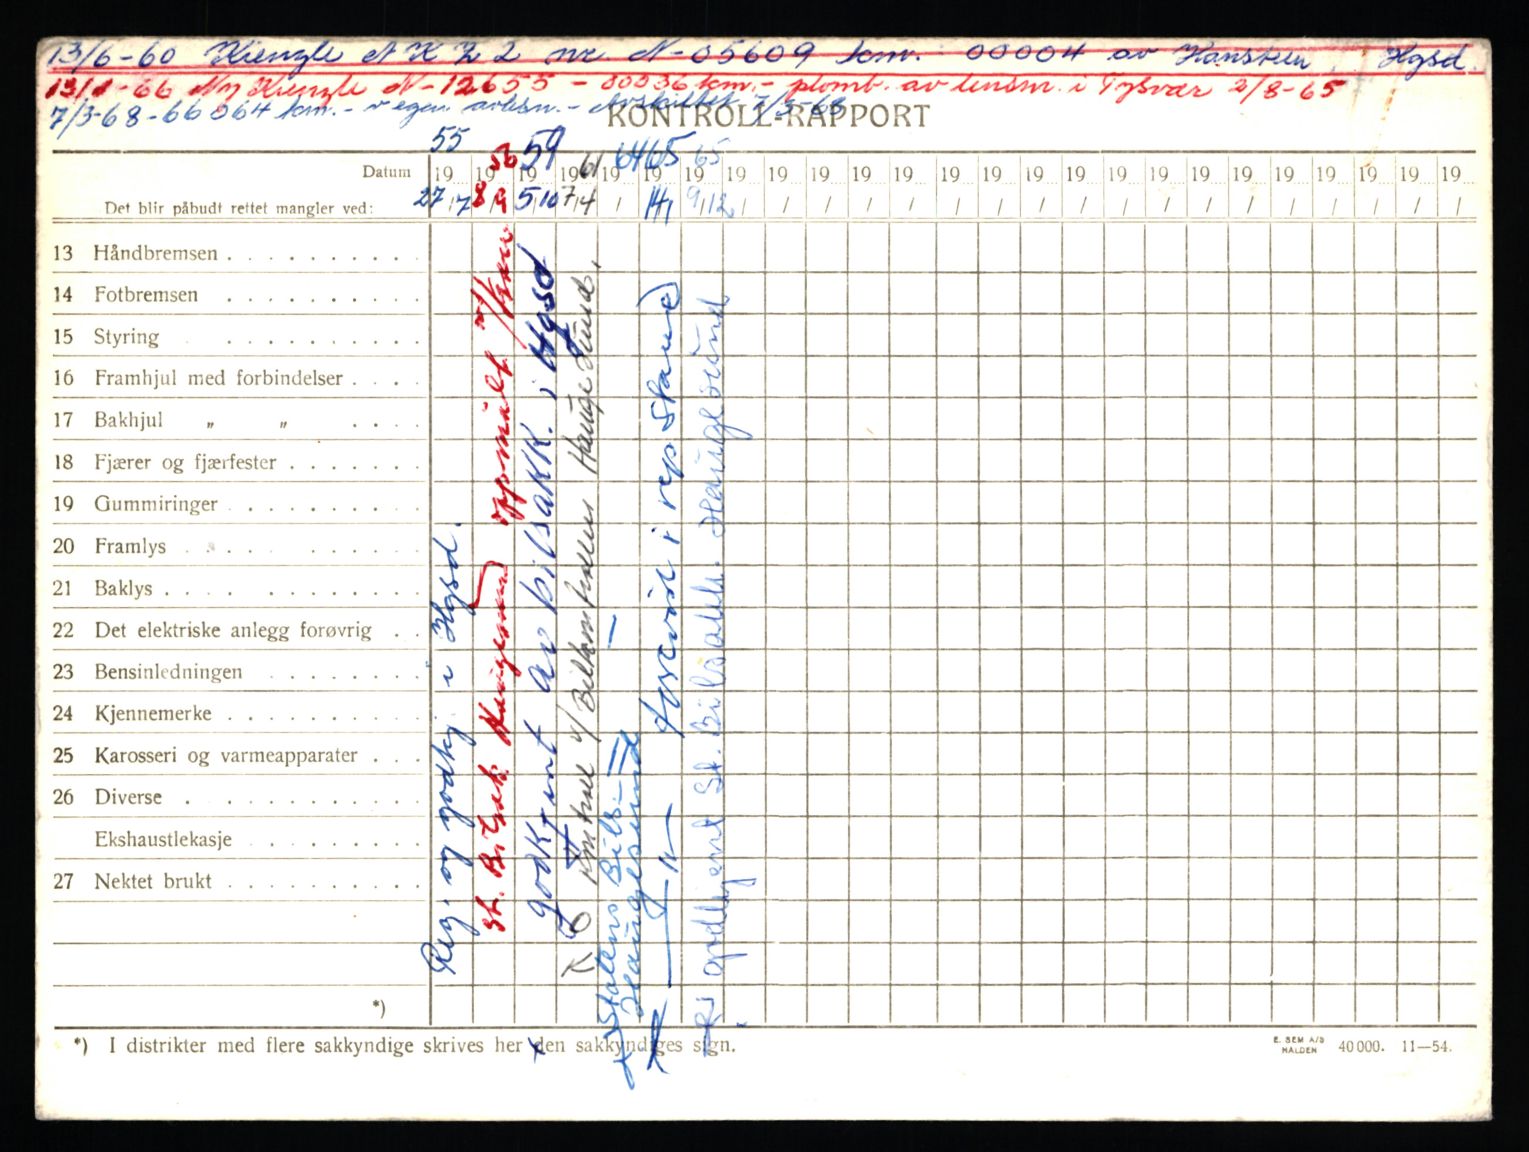 13/6-60 Kienzle A K Z 2 nr. N-05609 km. 00004 av Hansteen, Hgsd.
13/1-66 Ny Kienzle N-12655 - 00036 km. - plomb. av lensm. i Tysvær 2/8-65
7/3-68 - 66064 km. - v egen avlesn. - Avskiltet 7/3-68
KONTROLL-RAPPORT
55 56 59 61 64 65 65
Datum 19 19 19 19 19 19 19 19 19 19 19 19 19 19 19 19 19 19 19 19 19 19 19 19 19
Det blir påbudt rettet mangler ved: 27/7 8/9 5/10 7/4 / 14/1 9/12 / / / / / / / / / / / / / / / / / /
13 Håndbremsen
14 Fotbremsen
15 Styring
16 Framhjul med forbindelser
17 Bakhjul „ „
18 Fjærer og fjærfester
19 Gummiringer
20 Framlys
21 Baklys
22 Det elektriske anlegg forøvrig
23 Bensinledningen
24 Kjennemerke
25 Karosseri og varmeapparater
26 Diverse
Ekshaustlekasje
27 Nektet brukt
*)
Reg. og godkj. i Hgsd.
st. Bilsak. Haugesund oppmålt
godkjent av bilsakk. i Hgsd
Kontroll v/ Bilkontrollen Haugesund.
Statens Bils.
Haugesund
— " — Forevist i rep stand
godkjent St. Bilsakk. Haugesund
*) I distrikter med flere sakkyndige skrives her den sakkyndiges sign.
E. SEM A/S
HALDEN
40 000. 11—54.